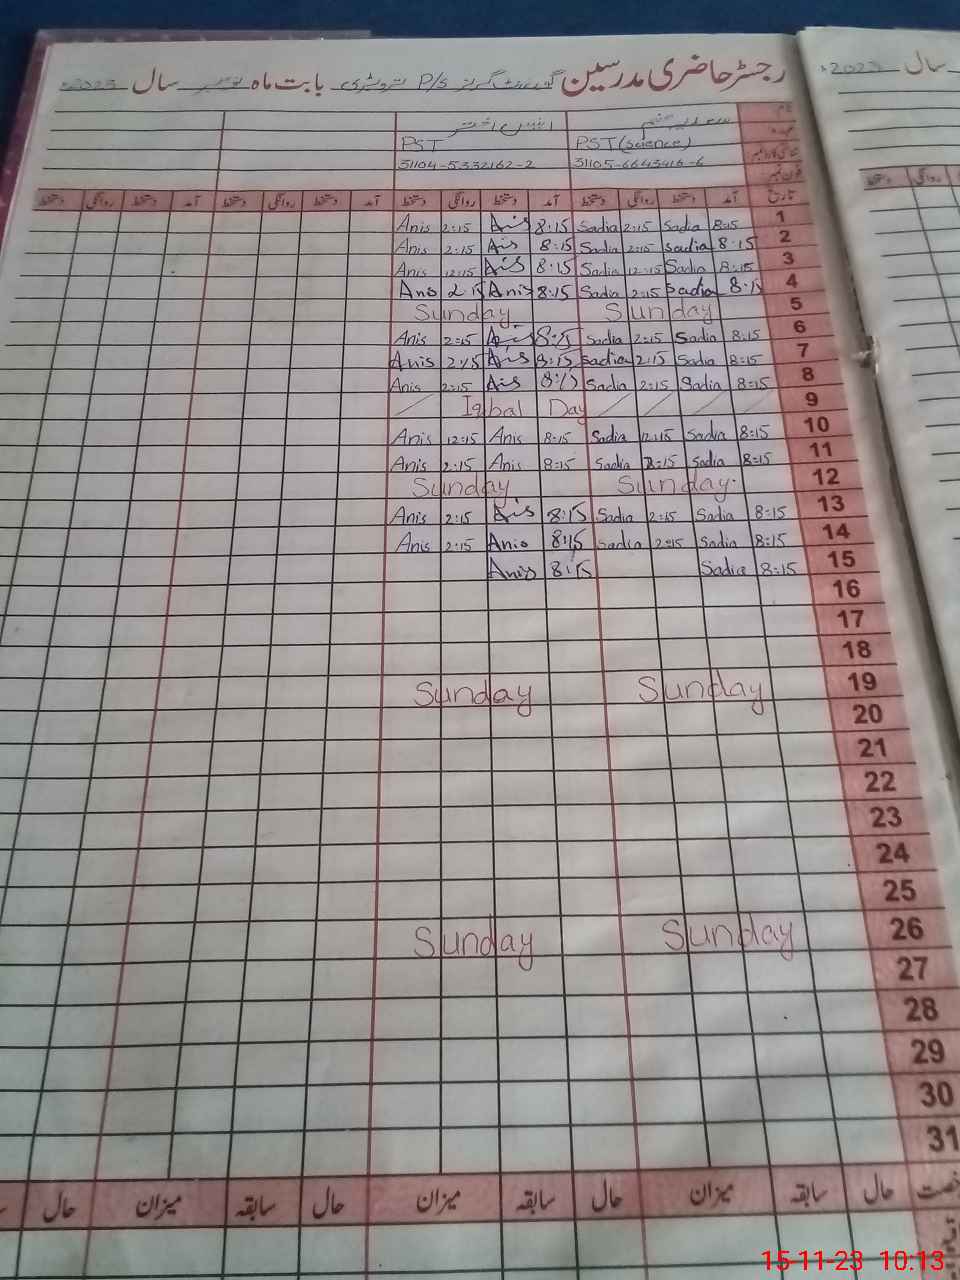 رجسٹر حاضری مدرسین گورنمنٹ گرلز P/S بابت ماہ نومبر سال 2023ء
سال 2023ء
نام
عہدہ
PST (science) PST
شناختی کارڈ نمبر 31105-6643416-6 31104-5332162-2
فون نمبر
تاریخ آمد دستخط روانگی دستخط آمد دستخط روانگی دستخط آمد دستخط روانگی دستخط آمد دستخط روانگی دستخط
دستخط روانگی
Anis 2:15 Anis 8:15 Sadia 2:15 Sadia 8:15 1
Anis 2:15 Ais 8:15 Sadia 2:15 Sadia 8:15 2
Anis 12:15 Ais 8:15 Sadia 12:15 Sadia 8:15 3
Anis 2:15 Anis 8:15 Sadia 2:15 Sadia 8:15 4
Sunday Sunday 5
Anis 2:15 Ais 8:15 Sadia 2:15 Sadia 8:15 6
Anis 2:15 Ais 8:15 Sadia 2:15 Sadia 8:15 7
Anis 2:15 Ais 8:15 Sadia 2:15 Sadia 8:15 8
Iqbal Day 9
Anis 12:15 Anis 8:15 Sadia 12:15 Sadia 8:15 10
Anis 2:15 Anis 8:15 Sadia 2:15 Sadia 8:15 11
Sunday Sunday 12
Anis 2:15 Ais 8:15 Sadia 2:15 Sadia 8:15 13
Anis 2:15 Anis 8:15 Sadia 2:15 Sadia 8:15 14
Anis 8:15 Sadia 8:15 15
16
17
18
Sunday Sunday 19
20
21
22
23
24
25
Sunday Sunday 26
27
28
29
30
31
حال سابقہ میزان حال سابقہ میزان حال سابقہ میزان حال
15-11-23 10:13